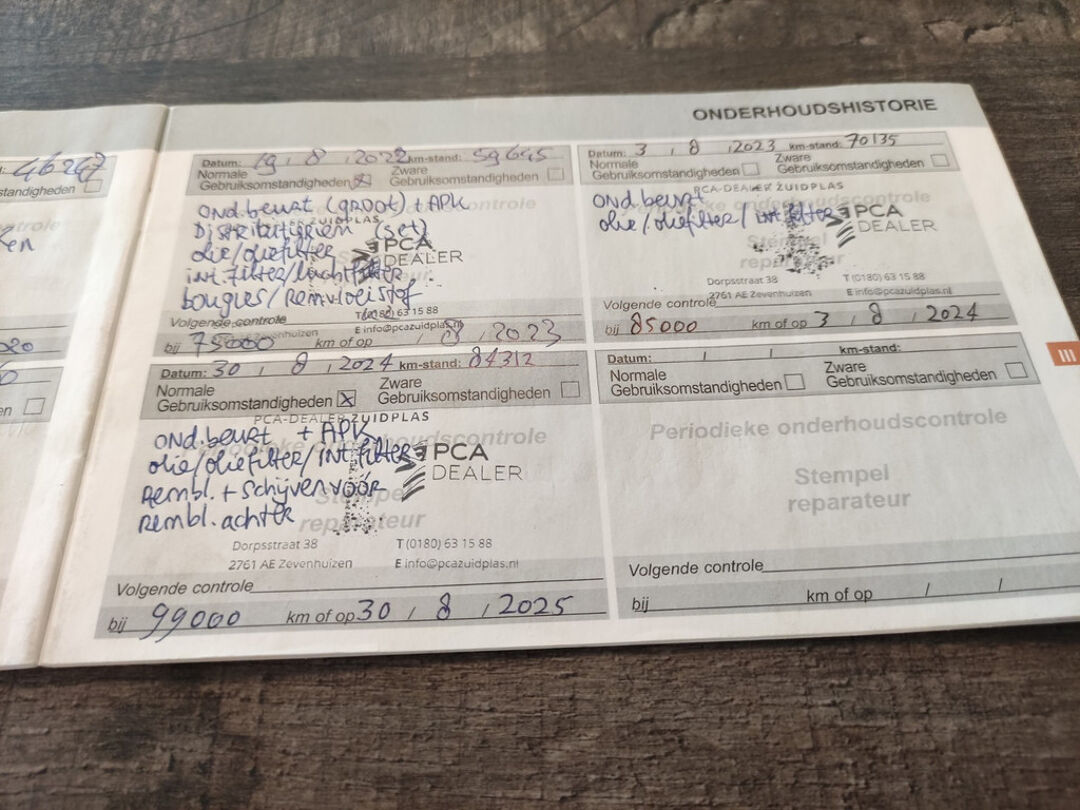 ONDERHOUDSHISTORIE
46267
standigheden
ken
en
Datum: 19 . 8 . 2022 km-stand: 59645
Normale
Gebruiksomstandigheden
Zware
Gebruiksomstandigheden
Ond.beurt (groot) + APK
Distributieriem (set)
olie/oliefilter
int.filter/luchtfilter
bougies/Remvloeistof
ZUIDPLAS
PCA
DEALER
T (0180) 63 15 88
E info@pcazuidplas.nl
Volgende controle
bij 75000 km of op / 8 / 2023
Datum: 3 , 8 , 2023 km-stand: 70135
Normale
Gebruiksomstandigheden
Zware
Gebruiksomstandigheden
PCA-DEALER ZUIDPLAS
Ond beurt
olie/oliefilter/int.filter
PCA
DEALER
Stempel
Dorpsstraat 38 T (0180) 63 15 88
2761 AE Zevenhuizen E info@pcazuidplas.nl
Volgende controle
bij 85000 km of op 3 / 8 / 2024
Datum: 30 , 8 , 2024 km-stand: 84312
Normale
Gebruiksomstandigheden
Zware
Gebruiksomstandigheden
PCA-DEALER ZUIDPLAS
Ond.beurt + APK
olie/oliefilter/int.filter
Rembl. + Schijven voor
Rembl. achter
PCA
DEALER
Stempel
reparateur
Dorpsstraat 38 T (0180) 63 15 88
2761 AE Zevenhuizen E info@pcazuidplas.nl
Volgende controle
bij 99000 km of op 30 / 8 / 2025
Datum: / / km-stand:
Normale
Gebruiksomstandigheden
Zware
Gebruiksomstandigheden
Periodieke onderhoudscontrole
Stempel
reparateur
Volgende controle
bij km of op / /
III